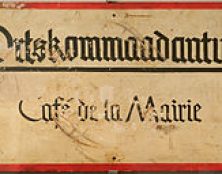 Ortskommandantu
Café de la Mairie